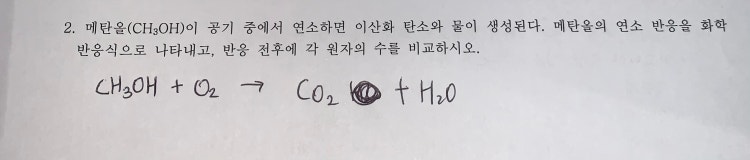 2. 메탄올(CH₃OH)이 공기 중에서 연소하면 이산화 탄소와 물이 생성된다. 메탄올의 연소 반응을 화학
반응식으로 나타내고, 반응 전후에 각 원자의 수를 비교하시오.
CH₃OH + O₂ → CO₂ + H₂O